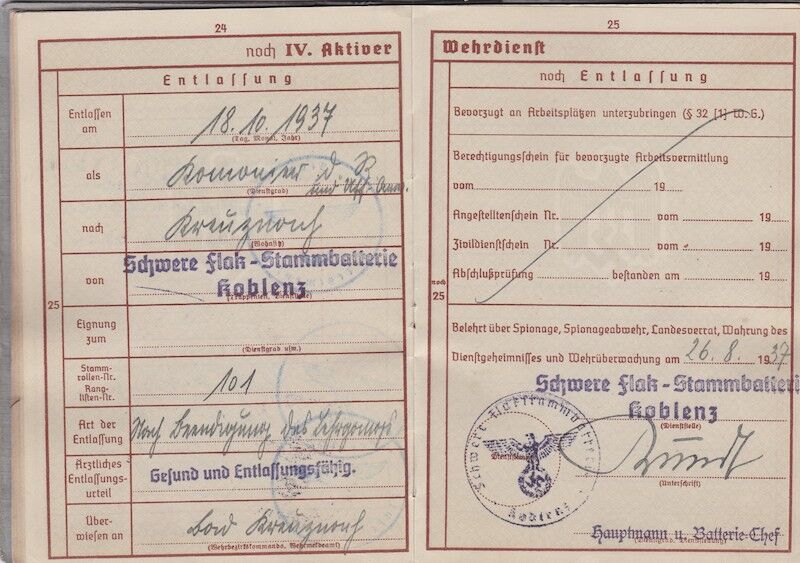 24
noch IV. Aktiver
Entlassung
Entlassen am
18. 10. 1937
(Tag, Monat, Jahr)
als
Kanonier d. R.
und Uffz. Anw.
(Dienstgrad)
nach
Kreuznach
(Wohnsitz)
von
Schwere Flak-Stammbatterie
Koblenz
(Truppenteil, Dienststelle)
25
Eignung zum
(Dienstgrad usw.)
Stamm-
rollen-Nr.
Rang-
listen-Nr.
101
Art der
Entlassung
Nach Beendigung des Lehrgangs
Ärztliches
Entlassungs-
urteil
Gesund und Entlassungsfähig.
Über-
wiesen an
Bad Kreuznach
(Wehrbezirkskommando, Wehrmeldeamt)
25
Wehrdienst
noch Entlassung
Bevorzugt an Arbeitsplätzen unterzubringen (§ 32 [1] W. G.)
Berechtigungsschein für bevorzugte Arbeitsvermittlung
vom 19
Angestelltenschein Nr. vom 19
Zivildienstschein Nr. vom 19
Abschlußprüfung bestanden am 19
noch
25
Belehrt über Spionage, Spionageabwehr, Landesverrat, Wahrung des
Dienstgeheimnisses und Wehrüberwachung am 26. 8. 1937
Schwere Flak-Stammbatterie
Koblenz
(Dienststelle)
Schwere Flakstammbatterie
Koblenz
(Unterschrift)
Hauptmann u. Batterie-Chef